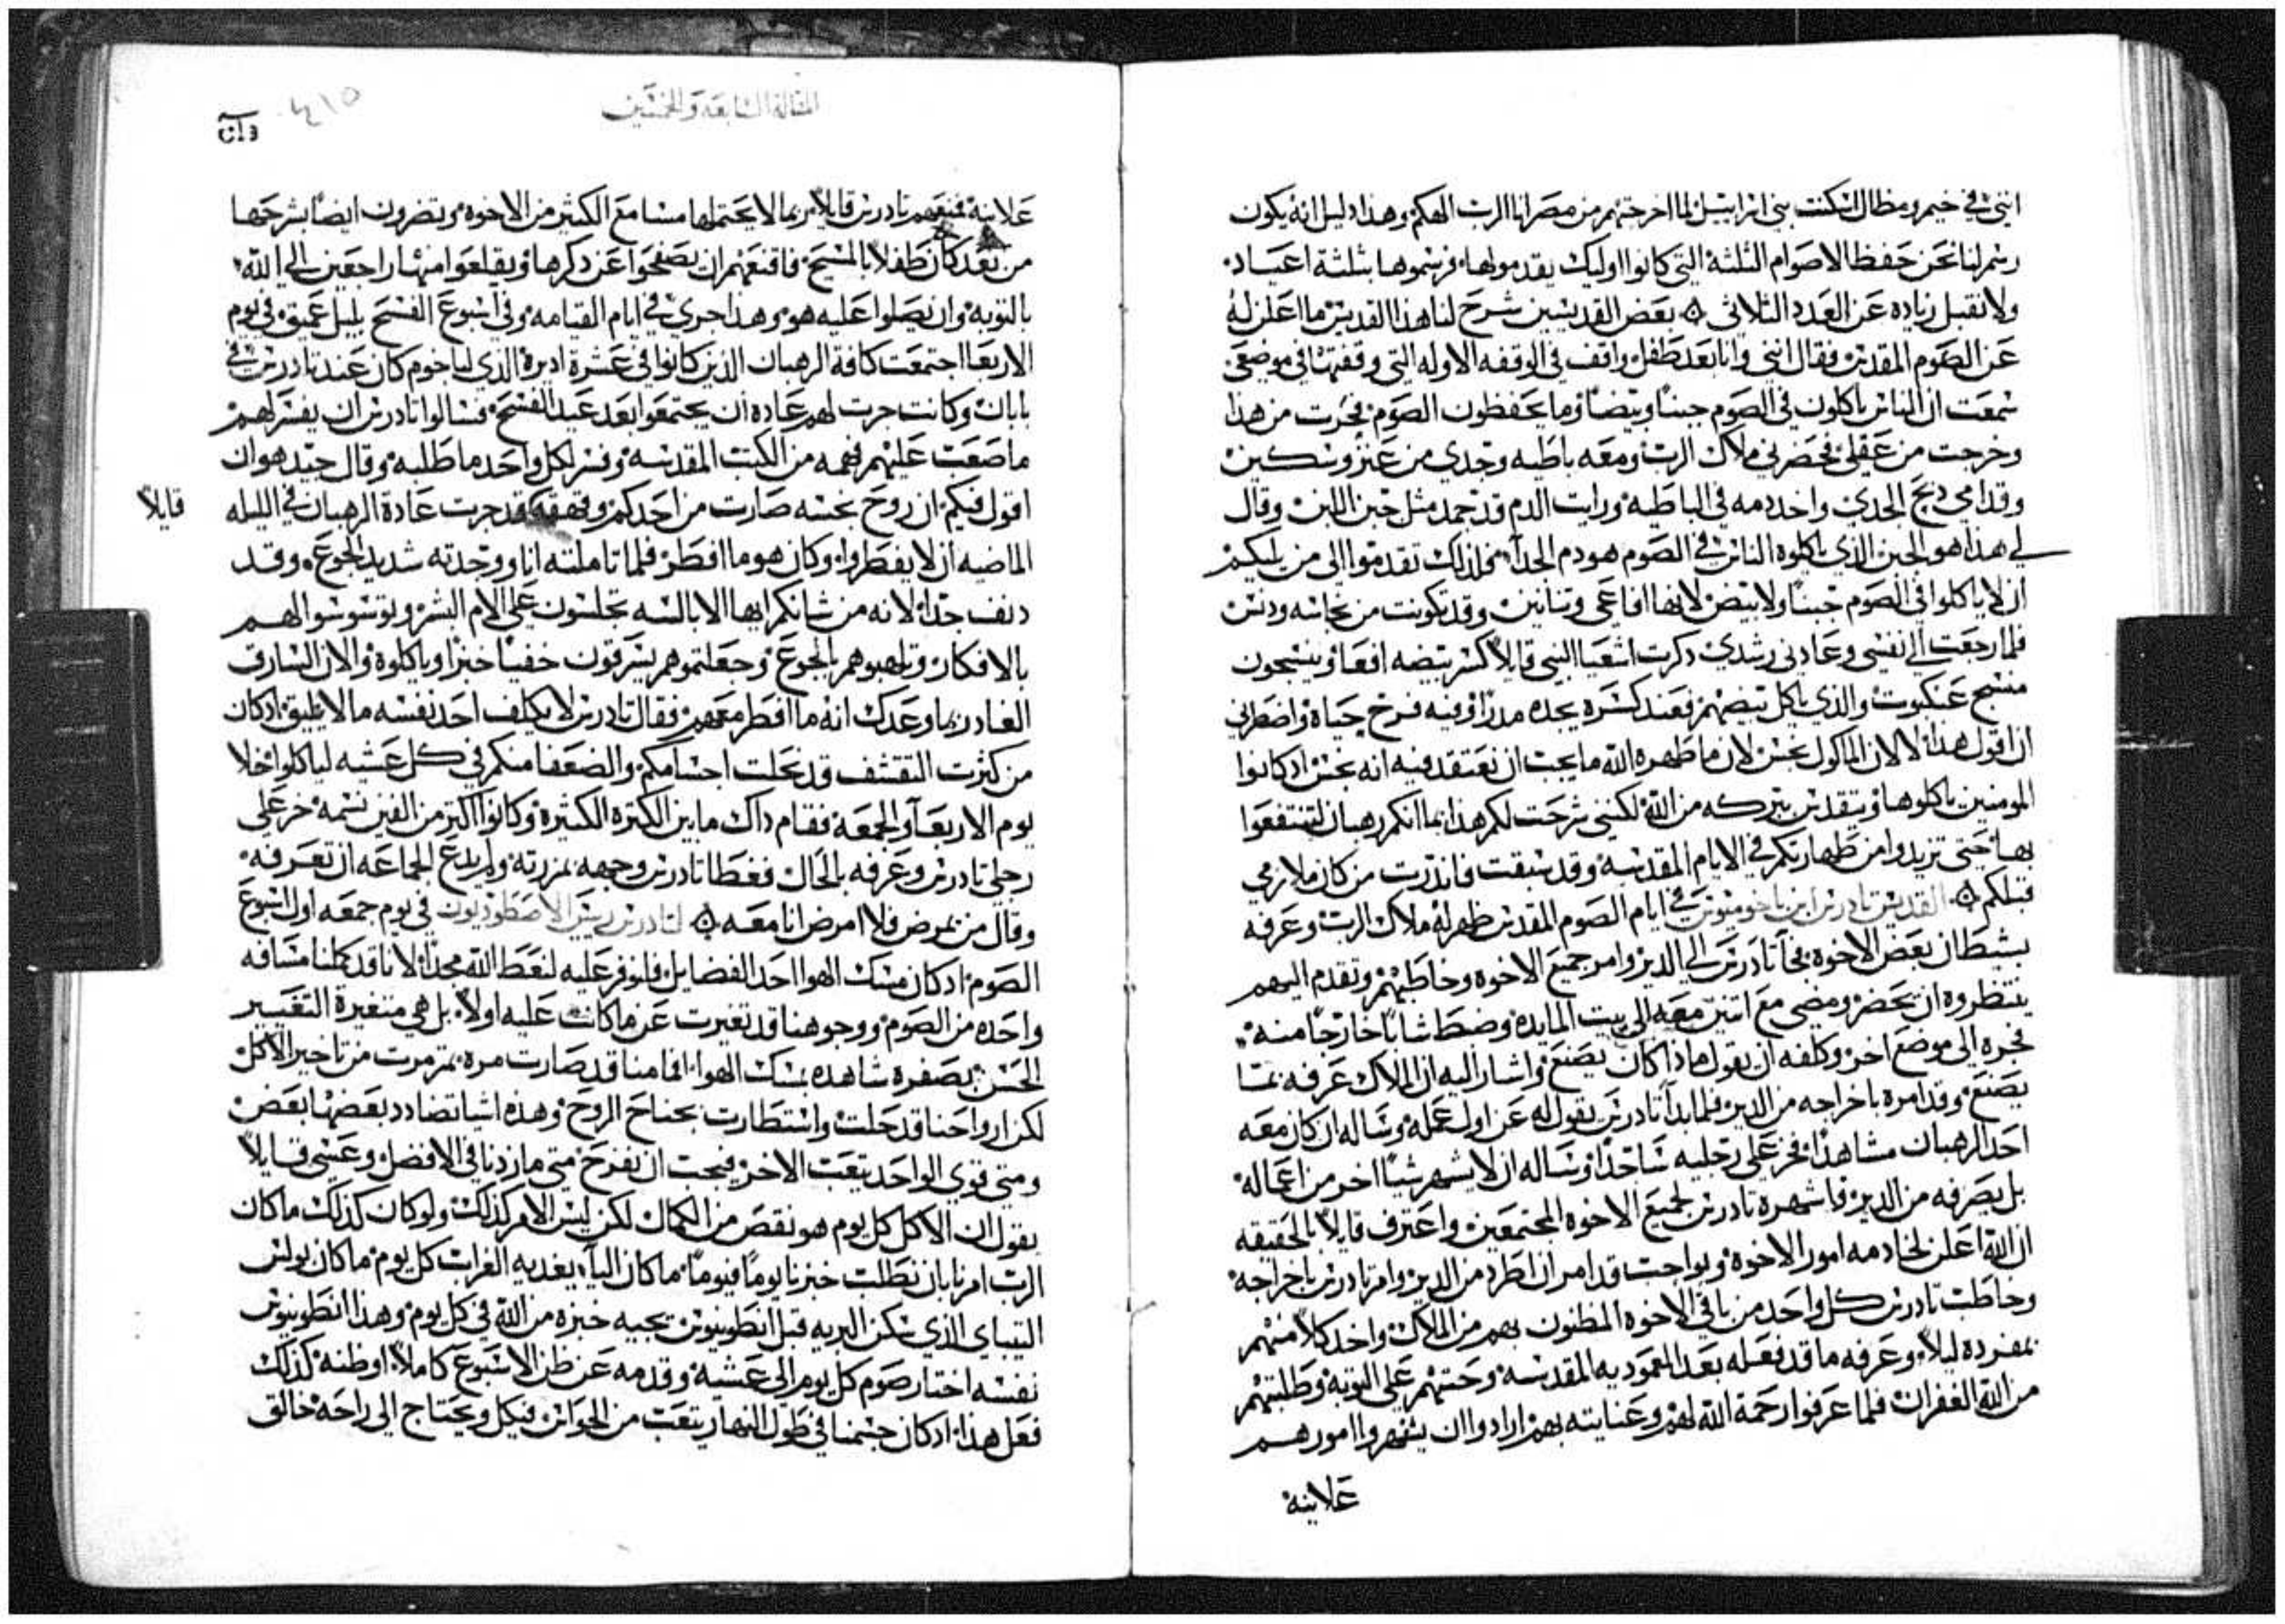 انني في خيم ومظال اسكنت بني اسراييل لما اخرجتهم من مصر انا الرب الهكم وهذا دليل انه يكون
رسم لنا نحن حفظ الاصوام الثلثة التي كانوا اوليك يقدمولها فرسموها بثلثة اعياد
ولا نقبل زياده عن العدد الثلاثي بعض القديسين شرح لنا هذا القديس ما اعلن له
عن الصوم المقدس فقال انني وانا بعد طفل واقف في الوقفه الاوله التي وقفتها في موضعي
سمعت ان الناس ياكلون في الصوم جبنا وبيضا وما يحفظون الصوم فحرت من هذا
وخرجت من عقلي فحضرني ملاك الرب ومعه باطيه وجدي من عنز وسكين
وقدامي دبح الجدي واخد دمه في الباطيه ورايت الدم قد جمد مثل جبن اللبن وقال
لي هذا هو الجبن الذي ياكلوه الناس في الصوم هو دم الجدآ فلذلك تقدموا الى من يليكم
ان لا ياكلوا في الصوم جبنا ولا بيض لانها افاعي وتنانين وقد تكونت من نجاسه ودنس
فلما رجعت الى نفسي وعادني رشدي ذكرت اشعيا النبي قايلا كسر بيضه افعا وينسجون
منسج عنكبوت والذي ياكل بيضهم فعند كسره يجده مدرا وفيه فرخ حياة واضطراني
ان اقول هذا لا لان الماكول نجس لان ما طهره الله ما يجب ان نعتقد فيه انه نجس ادكانوا
المومنين ياكلوها ويتقدس بتركه من الله لكنني شرحت لكم هذا بما انكم رهبان لتنتفعوا
بها حتى تزيدوا من طهارتكم في الايام المقدسه وقد سبقت فاندرت من كان ملازمي
قبلكم القديس تادرس ابن باخوميوس في ايام الصوم المقدس ظهر له ملاك الرب وعرفه
بشيطان بعض الاخوه فجآ تادرس الى الدير وامر جميع الاخوه وخاطبهم وتقدم اليهم
ينتظروه ان يحضر ومضى مع اتنين معه الى بيت المايده وضبط شابا خارجا منه
فجره الى موضع اخر وكلفه ان يقول ماذا كان يصنع واشار اليه ان الملاك عرفه بما
يصنع وقد امره باخراجه من الدير فلما بدا تادرس يقول له عن اول عمله وساله ان كان معه
احد الرهبان مشاهدا فخر على رجليه ساجدا وساله ان لا يشهر شيا اخر من اعماله
بل يصرفه من الدير فاشهره تادرس لجميع الاخوه المجتمعين واعترف قايلا بالحقيقه
ان الله اعلن لخادمه امور الاخوه وبواجب قد امر ان اطرد من الدير وامر تادرس باخراجه
وخاطب تادرس كل واحد من باقي الاخوه المظنون بهم من الملاك واخد كلا منهم
بمفرده ليلا وعرفه ما قد فعله بعد المعموديه المقدسه وحتهم على التوبه وطلبتهم
من الله الغفران فلما عرفوا رحمة الله لهم وعنايته بهم ارادوا ان يشهروا امورهم
علانية
المقالة السابعة والخمسين
علانية فمنعهم تادرس قايلا ربما لا يحتملها مسامع الكثير من الاخوه ويتضررون ايضا بشرحها
من بعد كان طفلا بالمسيح فاقنعهم ان يصفحوا عن ذكرها ويقلعوا منها راجعين الى الله
بالتوبه وان يصلوا عليه هو وهذا جرى في ايام القيامه وفي اسبوع الفسح بليل عميق في يوم
الاربعا اجتمعت كافة الرهبان الذين كانوا في عشرة اديرة الذي لباخوم كان عند تادرس في
بابان وكانت جرت لهم عادة ان يجتمعوا بعد عيد الفسح فسالوا تادرس ان يفسر لهم
ما صعب عليهم فهمه من الكتب المقدسه وفسر لكل واحد ما طلبه وقال جيد هو ان
اقول فيكم ان روح نجسه صارت من احدكم وقهقهة قد جرت عادة الرهبان في الليله
قايلا
الماضيه ان لا يفطروا وكان هو ما افطر فلما تاملته انا ووجدته شديد الجوع وقد
دنف جدا لانه من شانكم ايها الابالسه تجلسون على الام البشر وتوسوسوا لهم
بالافكار وتلهبوهم بالجوع وجعلتموهم يسرقون خفيا خبزا وياكلوه والان السارق
الغادر بها وعدك انه ما افطر معهم فقال تادرس لا يكلف احد نفسه ما لا يليق ادكان
من كثرت التقشف قد نحلت اجسامكم والضعفا منكم في كل عشيه لياكلوا خلا
يوم الاربعآ والجمعة فقام داك ما بين الكثرة الكثيرة وكانوا اكثر من الفين نسمه خر على
رجلي تادرس وعرفه بالحال فغطا تادرس وجهه بمزرته ولم يدع الجماعه ان تعرفه
وقال من يمرض فلا امرض انا معه لتادرس ريس الاصطوديون في يوم جمعه اول اسبوع
الصوم ادكان مسك الهوا احد الفضايل فلنوفر عليه لنعط الله مجدا لانا قد كملنا مسافه
واحده من الصوم ووجوهنا قد تغيرت عن ما كانت عليه اولا بل هي متغيرة التغيير
الحسن بصفره شاهده بمسك الهوا افامنا قد صارت مره بتمرمرت من تاخير الاكل
لكن ارواحنا قد حلت واستطارت بجناح الروح وهذه اشيا تضادد بعضها بعض
ومتى قوي الواحد يتعب الاخر فيجب ان نفرح متى ما زدنا في الافضل وعسى قايلا
يقول ان الاكل كل يوم هو نقص من الكمال لكن ليس الامر كذلك ولو كان كذلك ما كان
الرب امرنا بان نطلب خبزنا يوما فيوما ما كان اليآ يغديه الغراب كل يوم ما كان بولس
التيباي الذي سكن البريه قبل انطونيوس يجيه خبزه من الله في كل يوم وهذا انطونيوس
نفسه اختار صوم كل يوم الى عشيه وقدمه عن طي الاسبوع كاملا اوطنه كذلك
فعل هذا ادكان جسمنا في طول النهار يتعب من الحواس فيكل ويحتاج الى راحة خالق